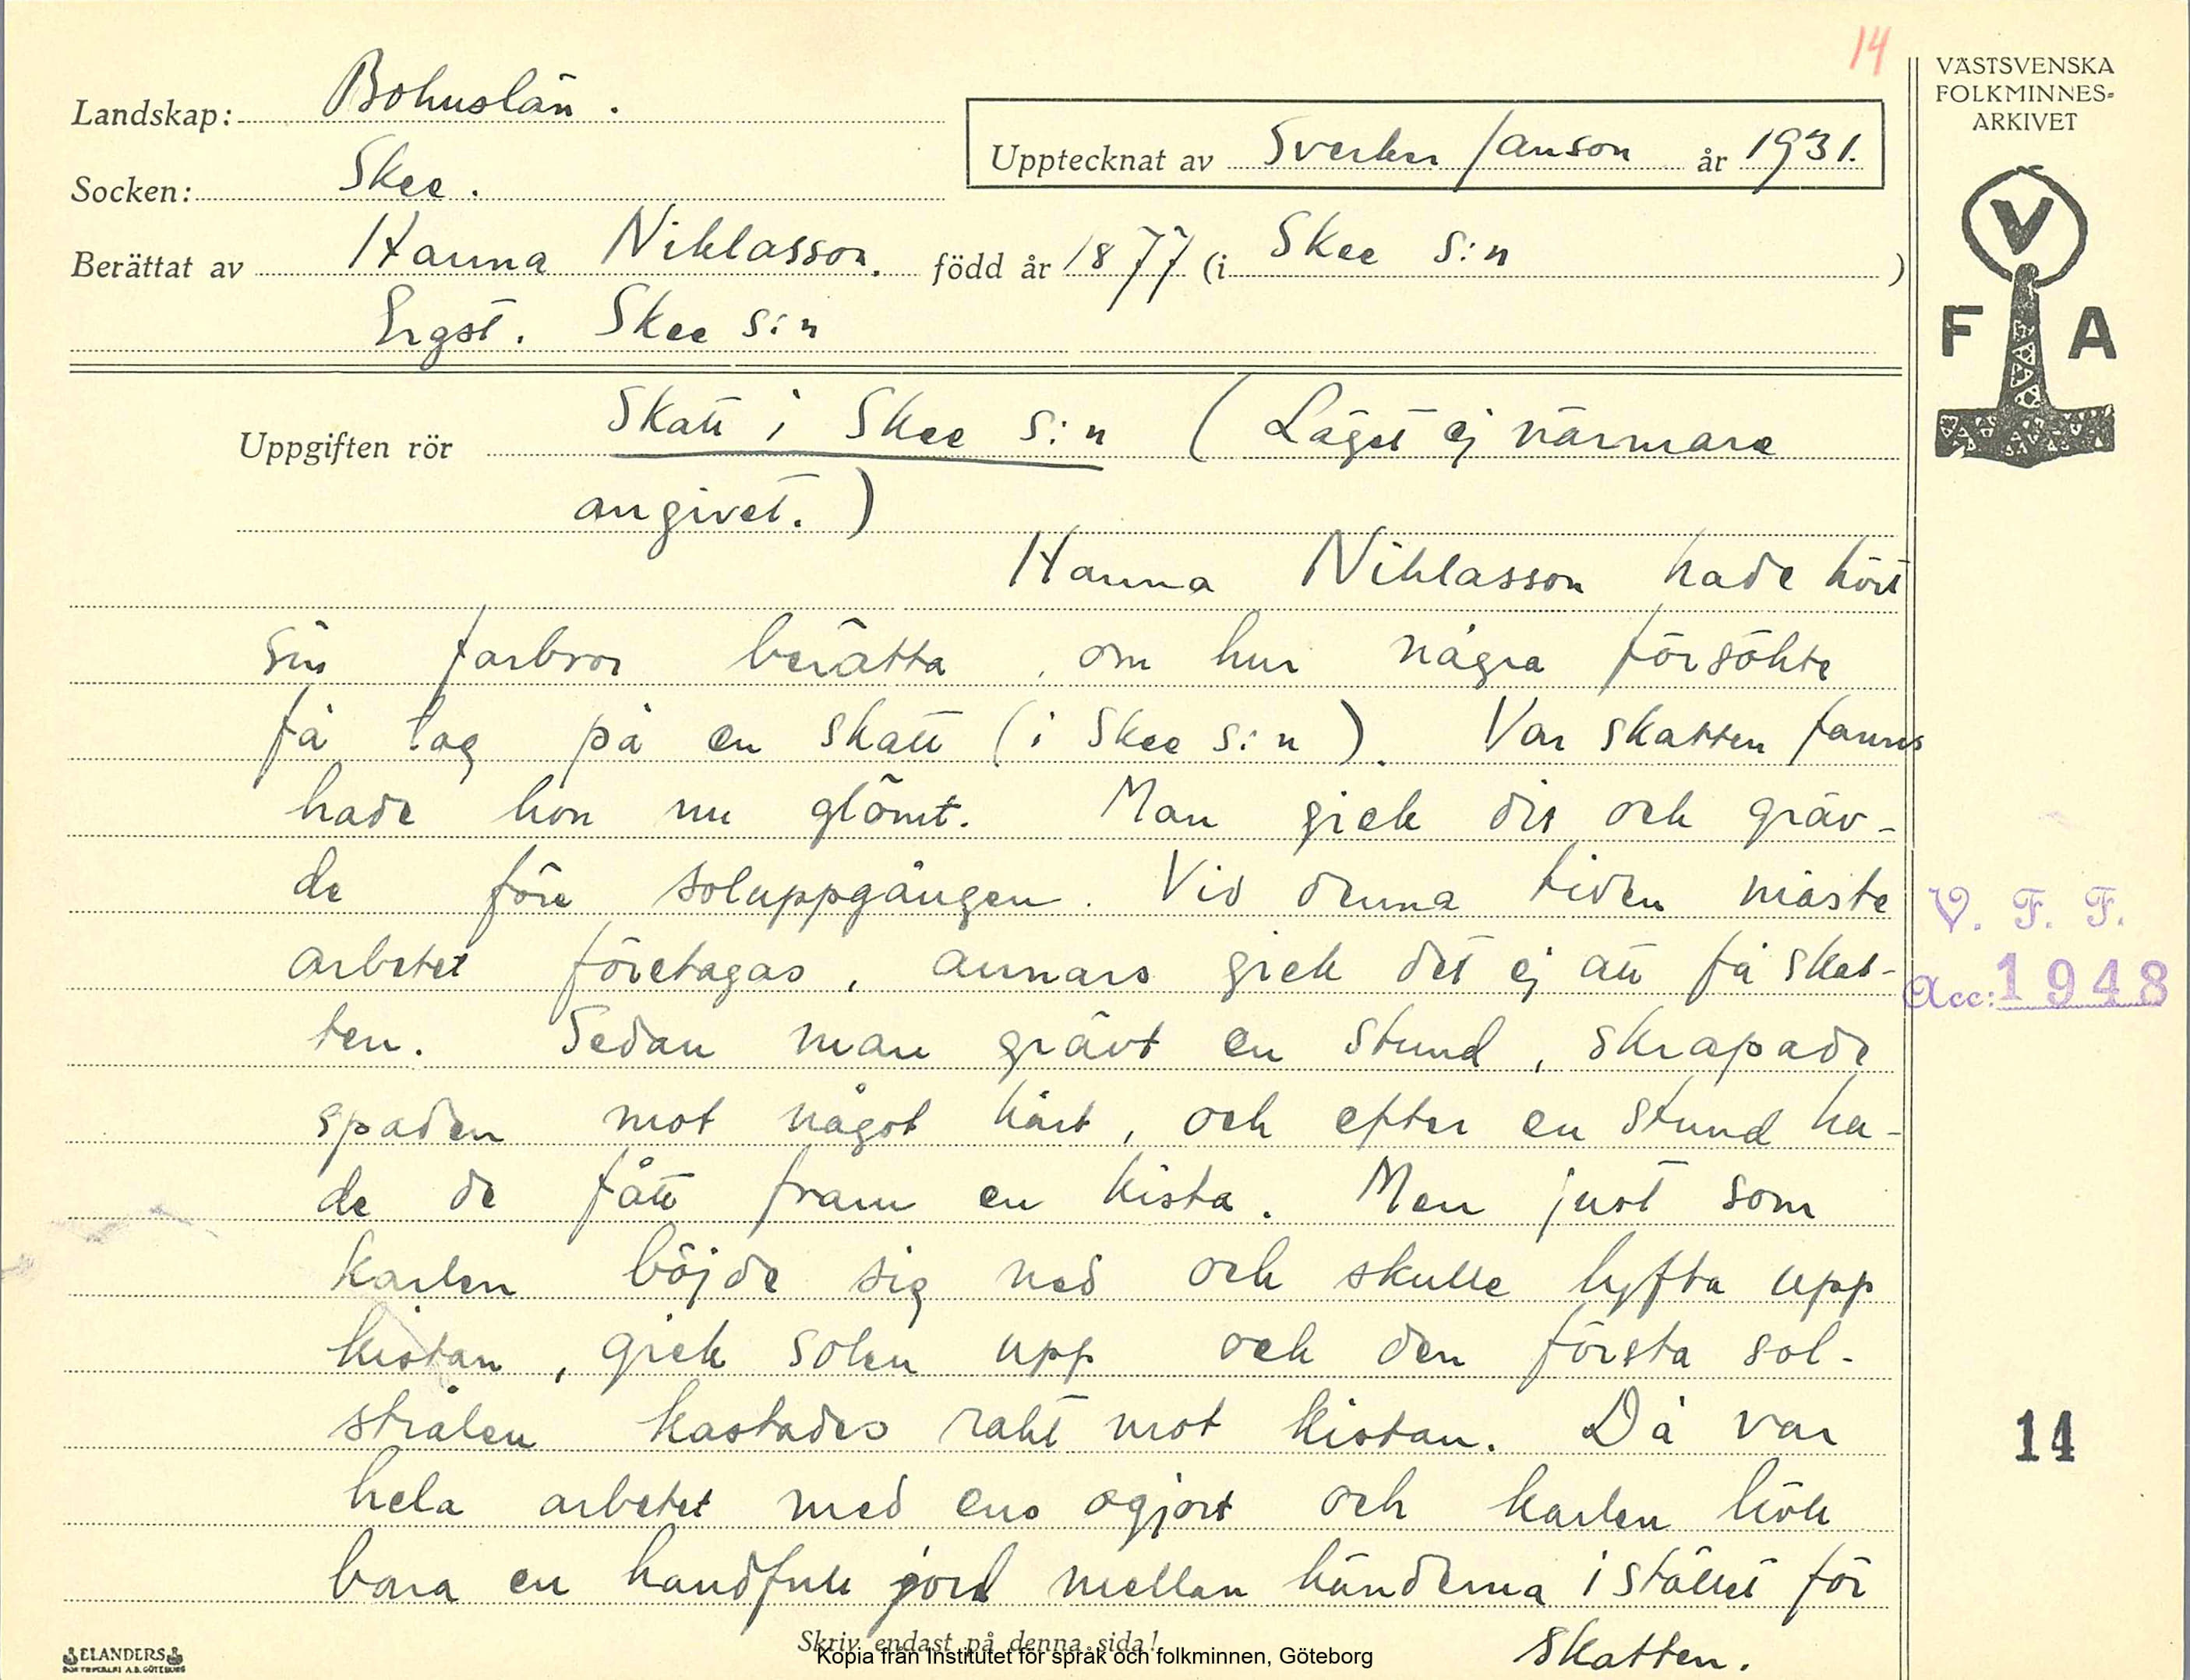 14
VÄSTSVENSKA
FOLKMINNES-
ARKIVET
Landskap: Bohuslän.
Upptecknat av Sverker Janson år 1931.
Socken: Skee.
Berättat av Hanna Niklasson. född år 1877 (i Skee s:n )
Ergst. Skee s:n
V
F A
Uppgiften rör Skatt i Skee s:n (Läget ej närmare
angivet.)
Hanna Niklasson hade hört
sin farbror berätta, om hur några försökte
få tag på en skatt (i Skee s:n). Var skatten fanns
hade hon nu glömt. Man gick dit och gräv-
de före soluppgången. Vid denna tiden måste
arbetet företagas, annars gick det ej att få skat-
ten. Sedan man grävt en stund, skrapade
spaden mot något hårt, och efter en stund ha-
de de fått fram en kista. Men just som
karlen böjde sig ned och skulle lyfta upp
kistan, gick solen upp och den första sol-
strålen kastades rakt mot kistan. Då var
hela arbetet med ens ogjort och karlen höll
bara en handfull jord mellan händerna i stället för
skatten.
V. F. F.
Acc: 1948
14
ELANDERS
Skriv endast på denna sida!
Kopia från Institutet för språk och folkminnen, Göteborg